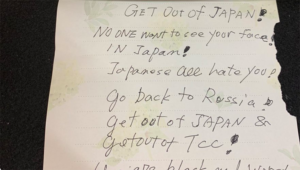 GET OUT OF JAPAN!
NO ONE WANT to see your face!
IN Japan!
Japanese all hate you!
go back to Russia!
get out of JAPAN &
Getout of Tcc!
black